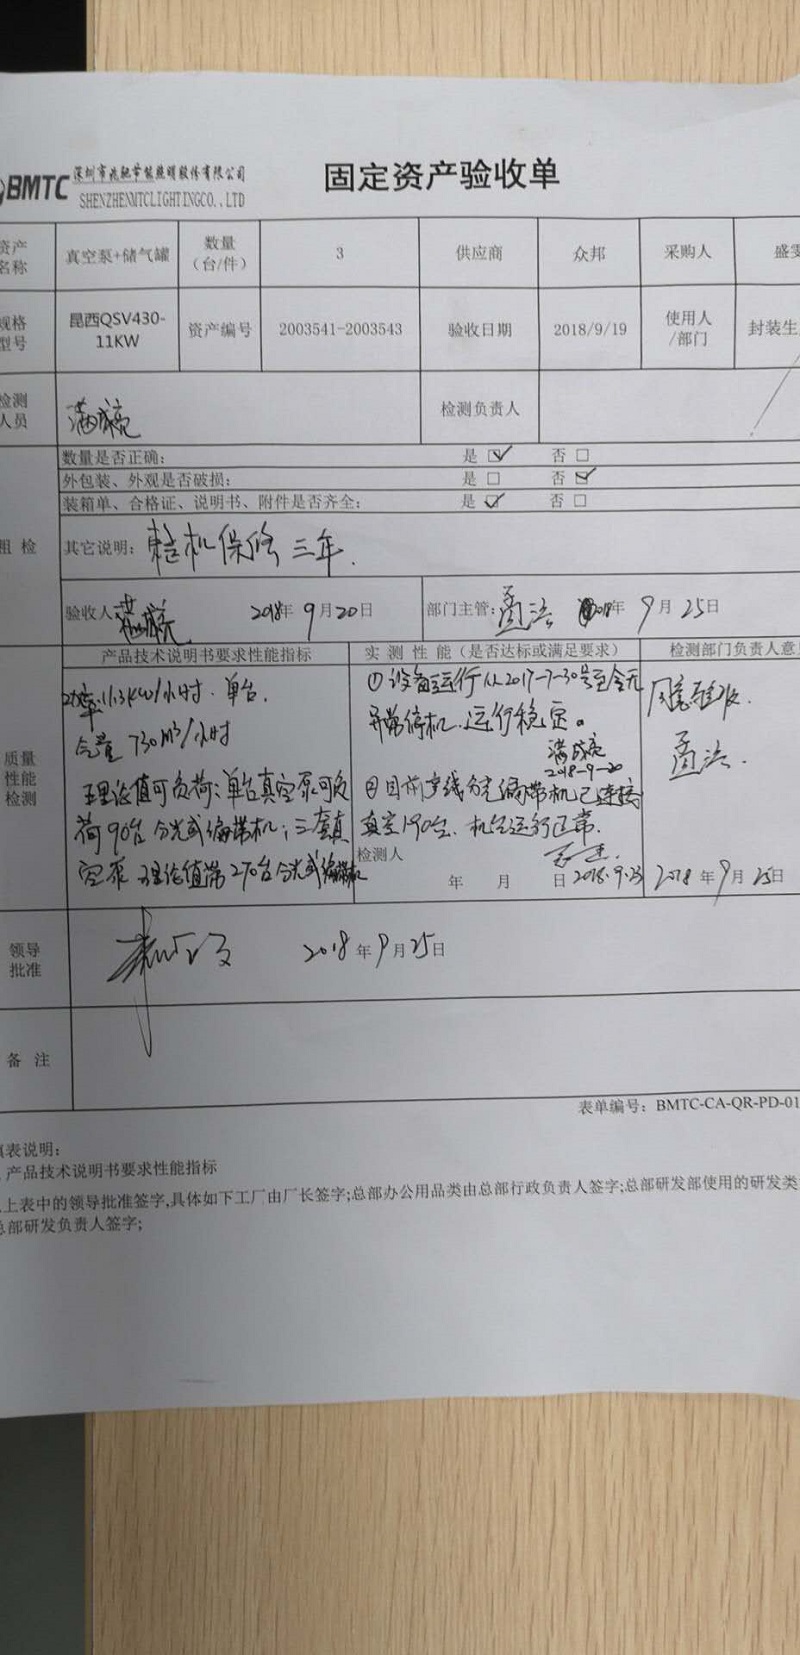 BMTC 深圳市兆驰节能照明股份有限公司
SHENZHENMTCLIGHTINGCO.,LTD
固定资产验收单
资产名称 真空泵+储气罐 数量（台/件） 3 供应商 众邦 采购人 盛
规格型号 昆西QSV430-11KW 资产编号 2003541-2003543 验收日期 2018/9/19 使用人/部门 封装生
检测人员 满成亮 检测负责人
数量是否正确: 是 ☑ 否 □
外包装、外观是否破损: 是 □ 否 ☑
装箱单、合格证、说明书、附件是否齐全: 是 ☑ 否 □
粗 检
其它说明: 整机保修三年.
验收人 满成亮 2018年9月20日 部门主管: 2018年9月25日
产品技术说明书要求性能指标 实 测 性 能（是否达标或满足要求） 检测部门负责人意
质量性能检测
功率:11.3KW/小时. 单台.
气量 730m³/小时
理论值可负荷:单台真空泵可负
荷90台 分光或编带机; 三套真
空泵 理论值带270台分光或编带机
①设备运行从2017-7-30号至今无
异常停机.运行稳定。
满成亮
2018-9-20
②目前产线分光编带机已连接
真空190台. 机台运行正常.
检测人
年 月 日 2018.9.23
同意验收.
2018年9月25日
领导批准 2018年9月25日
备 注
表单编号: BMTC-CA-QR-PD-01
填表说明:
产品技术说明书要求性能指标
上表中的领导批准签字,具体如下工厂由厂长签字;总部办公用品类由总部行政负责人签字;总部研发部使用的研发类
总部研发负责人签字;